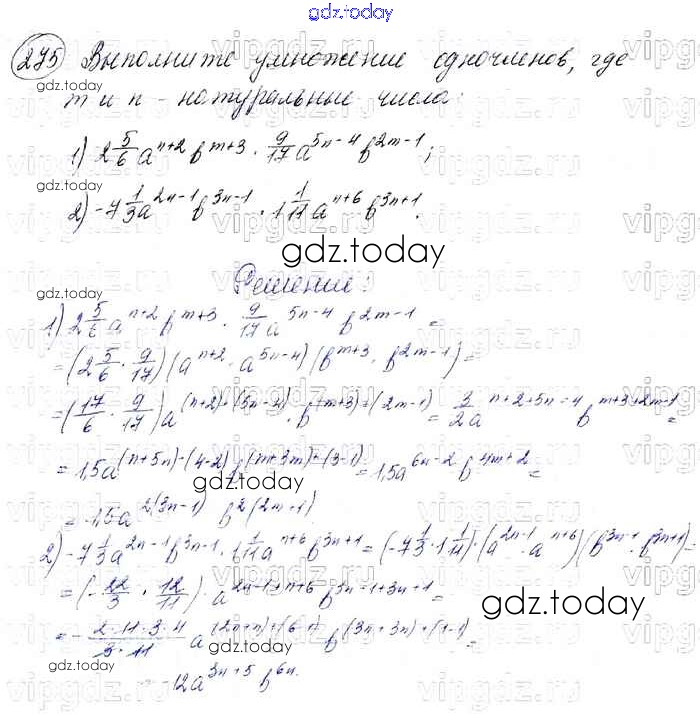 gdz.today
275 Выполните умножение одночленов, где
m и n - натуральные числа:
1) 2 5/6 a^(n+2) b^(m+3) · 9/17 a^(5n-4) b^(2m-1);
2) -7 1/3 a^(2n-1) b^(3n-1) · 1 1/11 a^(n+6) b^(3n+1).
gdz.today
Решение:
1) 2 5/6 a^(n+2) b^(m+3) · 9/17 a^(5n-4) b^(2m-1) =
= (2 5/6 · 9/17)(a^(n+2) · a^(5n-4))(b^(m+3) · b^(2m-1)) =
= (17/6 · 9/17) a^((n+2)+(5n-4)) · b^((m+3)+(2m-1)) = 3/2 a^(n+2+5n-4) b^(m+3+2m-1) =
= 1,5a^((n+5n)-(4-2)) b^((m+3m)+(3-1)) = 1,5a^(6n-2) b^(4m+2) =
= 1,5a^(2(3n-1)) b^(2(2m+1))
2) -7 1/3 a^(2n-1) b^(3n-1) · 1 1/11 a^(n+6) b^(3n+1) = (-7 1/3 · 1 1/11) · (a^(2n-1) · a^(n+6))(b^(3n-1) · b^(3n+1)) =
= (-22/3 · 12/11) · a^(2n-1+n+6) b^(3n-1+3n+1) =
gdz.today
= - 2·11·3·4/3·11 a^((2n+n)+(6-1)) b^((3n+3n)+(1-1)) =
gdz.today
- 12a^(3n+5) b^(6n).